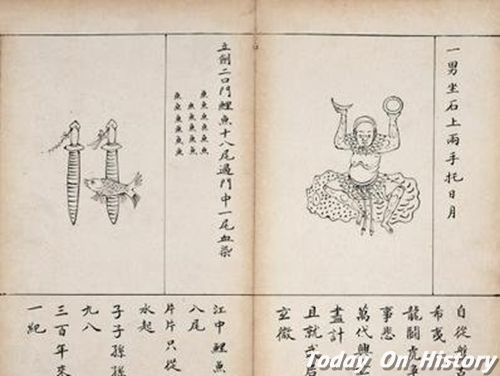 一男坐石上兩手托日月
自從盤古
希夷
龍鬪虎爭
事悲
萬代興亡
盡計
且就武后
玄微
立劍二口門鯉魚十八尾過門中一尾血染
魚魚魚魚魚魚
魚魚魚魚魚
魚魚魚魚魚
江中鯉魚
八尾
片片只從
水起
子子孫孫
九八
三百年來
一紀
Today On History